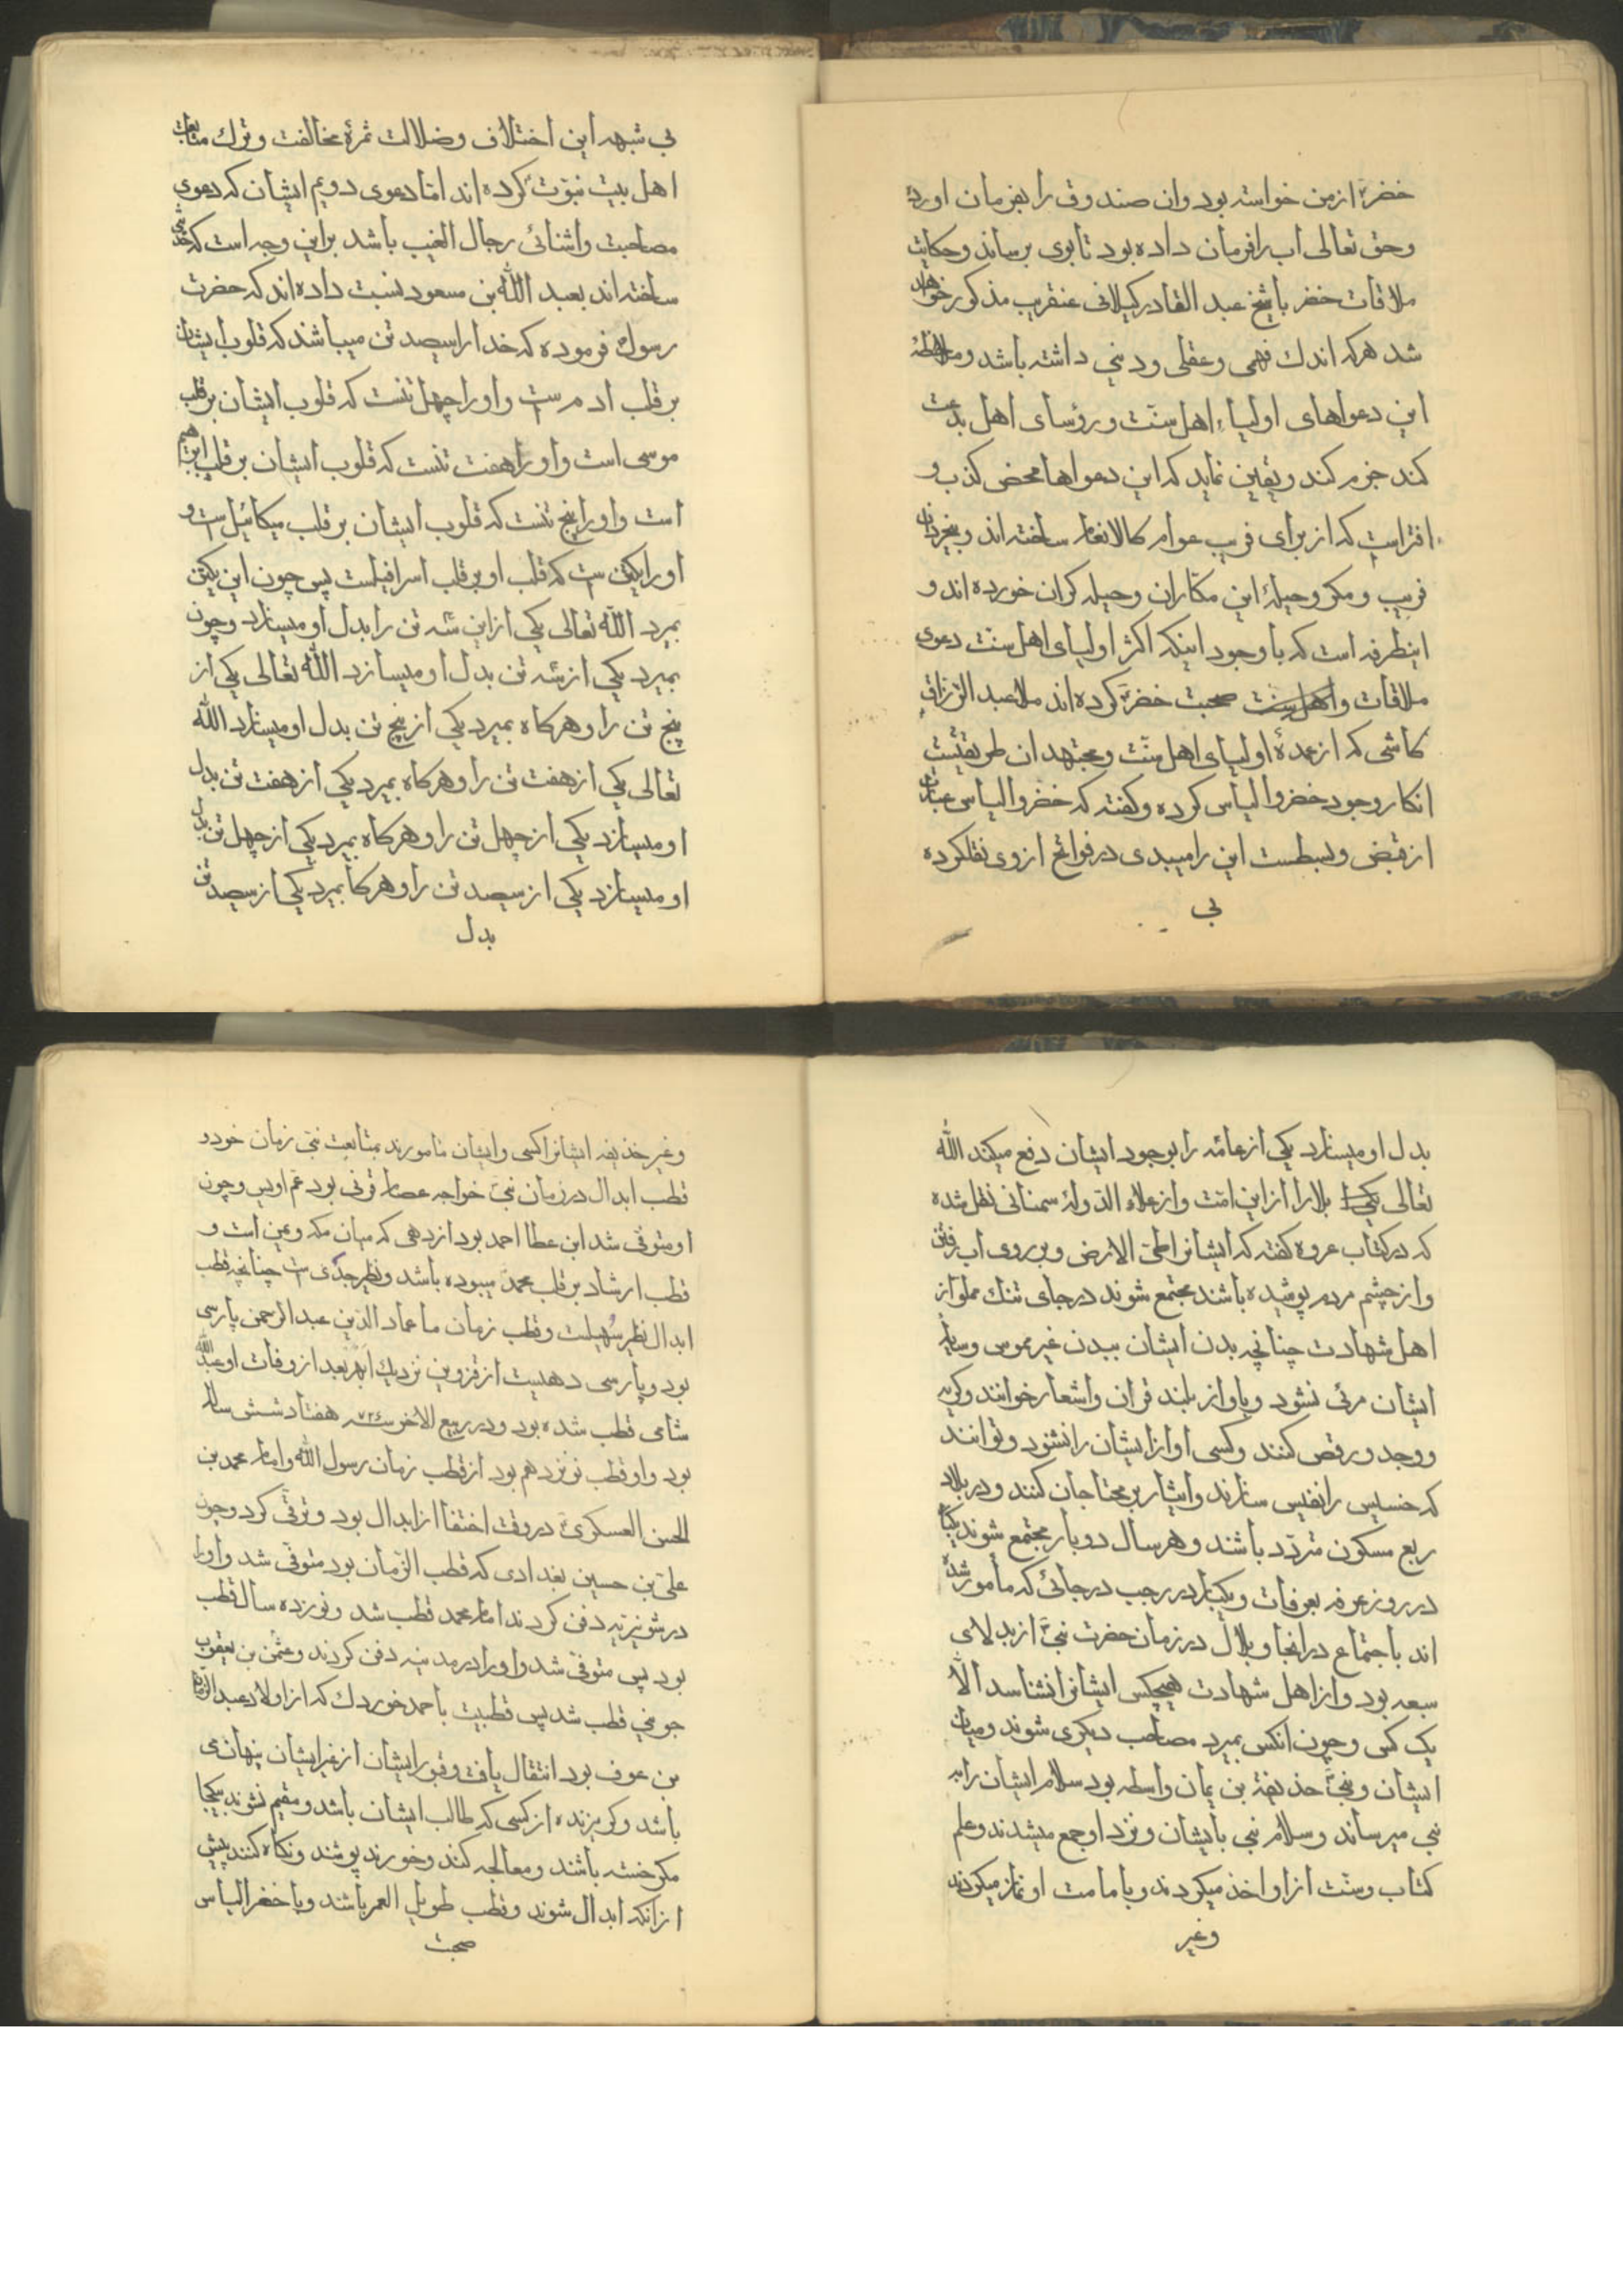 خضرؑ از من خواسته بود وان صندوق را بفرمان اورد
وحق تعالی اب را فرمان داده بود تا بوی برساند وحکایت
ملاقات خضر با شیخ عبد القادر کیلانی عنقریب مذکور خواهد
شد هرکه اندك فهمی وعقلی ودینی داشته باشد وملاحظهٔ
این دعواهای اولیاء اهل سنّت ورؤسای اهل بدعت
کند جزم کند ویقین نماید که این دعواها محض کذب و
افتراست که از برای فریب عوام کالانعام ساخته اند وبیخردان
فریب ومکر وحیلهٔ این مکّاران وحیله کران خورده اند و
اینطرفه است که با وجود اینکه اکثر اولیای اهل سنّت دعوی
ملاقات و صحبت خضرؑ کرده اند ملا عبد الرّزاق
کاشی که از عمدهٔ اولیای اهل سنّت ومجتهدان طریقتست
انکار وجود خضر والیاس کرده وکفته که خضر والیاس عبارت
از قبض وبسطست این را میبدی در فواتح از وی نقلکرده
بی
بی شبهه این اختلاف وضلالت ثمرهٔ مخالفت وترك متابعت
اهل بیت نبوّت کرده اند امّا دعوی دویم ایشان که دعوی
مصاحبت واشنائی رجال الغیب باشد براین وجه است که
ساخته اند بعبد اللّه بن مسعود نسبت داده اند که حضرت
رسولؐ فرموده که خدا را سیصد تن میباشند که قلوب ایشان
بر قلب ادم ست واو را چهل تنست که قلوب ایشان بر قلب
موسی است واو را هفت تنست که قلوب ایشان بر قلب ابراهیم
است واو را پنج تنست که قلوب ایشان بر قلب میکائیل است و
او را یکتن ست که قلب او بر قلب اسرافیلست پس چون این یکتن
بمیرد اللّه تعالی یکی از این سه تن را بدل او میسازد وچون
بمیرد یکی از سه تن بدل او میسازد اللّه تعالی یکی از
پنج تن را وهرکاه بمیرد یکی از پنج تن بدل او میسازد اللّه
تعالی یکی از هفت تن را وهرکاه بمیرد یکی از هفت تن بدل
او میسازد یکی از چهل تن را وهرکاه بمیرد یکی از چهل تن بدل
او میسازد یکی از سیصد تن را وهرکاه بمیرد یکی از سیصد تن
بدل
بدل او میسازد یکی از عامّه را بوجود ایشان دفع میکند اللّه
تعالی بلا را از این امّت واز علاء الدّولهٔ سمنانی نقل شده
که در کتاب عروه کفته که ایشانرا طیّ الارض وبر روی اب رفتن
واز چشم مردم پوشیده باشند مجتمع شوند در جای تنك مملو از
اهل شهادت چنانچه بدن ایشان ببدن غیر مموس وسایهٔ
ایشان مرئی نشود وباواز بلند قران واشعار خوانند وکریه
ووجد ورقص کنند وکسی اواز ایشان را نشنود وتوانند
که خسیس را نفیس سازند وایثار بر محتاجان کنند ودر بلاد
ربع مسکون متردّد باشند وهر سال دو بار مجتمع شوند یکبار
در روز عرفه بعرفات ویکبار در رجب در جائی که مأمور شده
اند باجتماع در انجا وبلال در زمان حضرت نبیؐ از بدلای
سبعه بود واز اهل شهادت هیچکس ایشانرا نشناسد الّا
یک کس وچون انکس بمیرد مصاحب دیکری شوند ومیان
ایشان ونبیؐ حذیفة بن یمان واسطه بود سلام ایشان را به
نبی میرساند وسلام نبی بایشان ونزد او جمع میشدند وعلم
کتاب وسنّت از او اخذ میکردند وبامامت او نماز میکردند
وغیر
وغیر حذیفه ایشانرا کسی وایشان مامورند بمتابعت نبیّ زمان خود و
قطب ابدال در زمان نبیؐ خواجه عصام قرنی بود عم اویس وچون
او متوفّی شد ابن عطا احمد بود از دهی که میان مکه ویمن است و
قطب ارشاد بر قلب محمّدؐ میبوده باشد ونظیر جدی ست چنانچه قطب
ابدال نظیر سهیلست وقطب زمان ما عماد الدّین عبد الرحمن پارسی
بود وپارسی دهیست از قزوین نزدیك ابهر بعد از وفات او عبد اللّه
شامی قطب شده بود ودر ربیع الاخر سنه هفتاد شش ساله
بود واو قطب نوزدهم بود از قطب زمان رسول اللّه وامام محمد بن
الحسن العسکریؑ در وقت اختفا از ابدال بود وترقّی کرد وچون
علیّ بن حسین بغدادی که قطب الزّمان بود متوفّی شد واو را
در شونیزیه دفن کردند امام محمد قطب شد ونوزده سال قطب
بود پس متوفّی شد واو را در مدینه دفن کردند وعثمن بن یعقوب
جوینی قطب شد پس قطبیت باحمد خوردك که از اولاد عبد الرّحمن
بن عوف بود انتقال یافت وقبور ایشان از غیر ایشان پنهان
باشد وکریزنده از کسی که طالب ایشان باشد ومقیم نشوند بیکجا
مکر خسته باشند ومعالجه کنند وخورند پوشند ونکاه کنند پیش
از انکه ابدال شوند وقطب طویل العمر باشد وبا خضر الیاس
صحبت